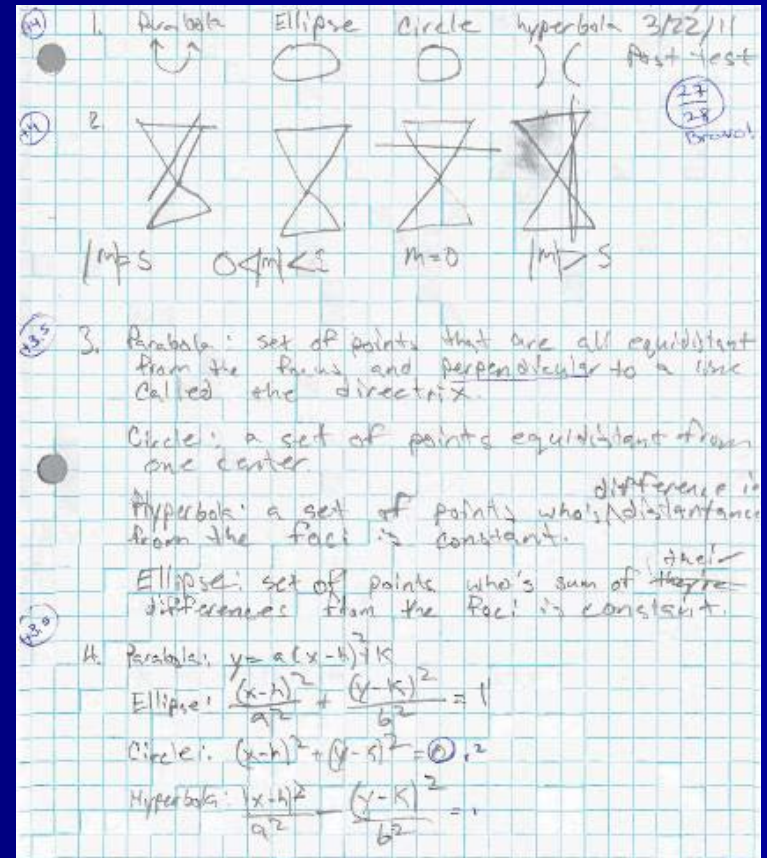 +4 1. Parabola Ellipse Circle hyperbola 3/22/11
Post-test
27/28
Bravo!
+4 2.
|m|=S 0<|m|<S m=0 |m|>S
+3.5 3. Parabola: set of points that are all equidistant
from the focus and perpendicular to a line
called the directrix.
Circle: a set of points equidistant from
one center.
difference in
Hyperbola: a set of points who's distantance
from the foci is constant.
their
Ellipse: set of points who's sum of they're
differences from the foci is constant.
4. Parabola: y = a(x-h)²+K
Ellipse: (x-h)²/a² + (y-K)²/b² = 1
Circle: (x-h)² + (y-K)² = r²
Hyperbola: (x-h)²/a² - (y-K)²/b² = 1